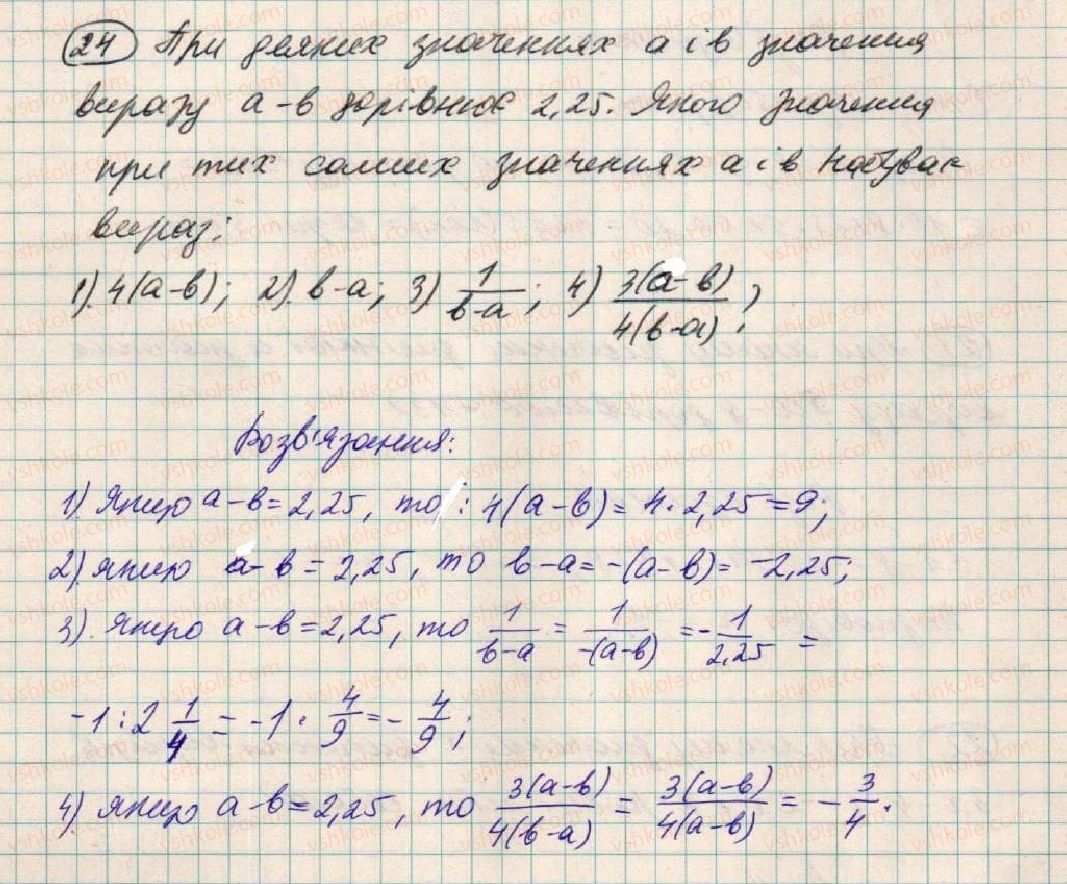 24 При деяких значеннях a і b значення
виразу a-b дорівнює 2,25. Якого значення
при тих самих значеннях a і b набуває
вираз:
1) 4(a-b); 2) b-a; 3) 1/(b-a); 4) 3(a-b)/4(b-a);
Розв'язання:
1) Якщо a-b=2,25, то: 4(a-b)=4·2,25=9;
2) якщо a-b=2,25, то b-a=-(a-b)=-2,25;
3) Якщо a-b=2,25, то 1/(b-a) = 1/-(a-b) = -1/2,25 =
-1:2 1/4 = -1·4/9 = -4/9;
4) якщо a-b=2,25, то 3(a-b)/4(b-a) = 3(a-b)/4(a-b) = -3/4.